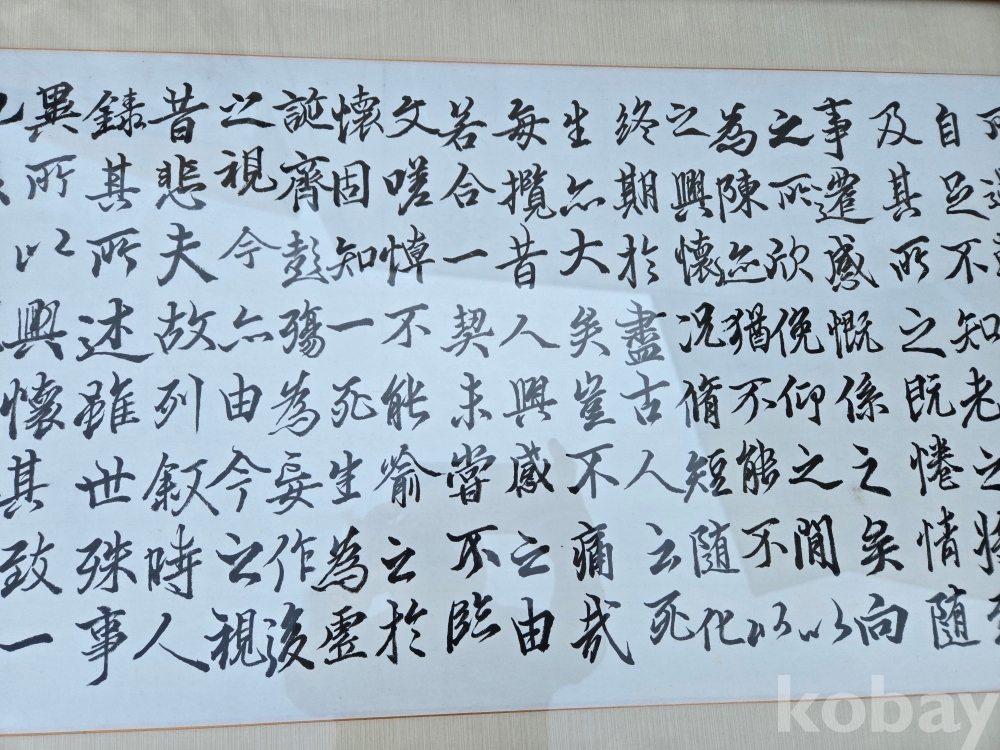 自足不知老之將至
及其所之既惓情随
事遷感慨係之矣向
之所欣俛仰之間以
為陳迹猶不能不以
之興懷況脩短随化
終期於盡古人云死
生亦大矣豈不痛哉
每攬昔人興感之由
若合一契未嘗不臨
文嗟悼不能喻之於
懷固知一死生為虛
誕齊彭殤為妄作後
之視今亦由今之視
昔悲夫故列叙時人
錄其所述雖世殊事
異所以興懷其致一
kobay